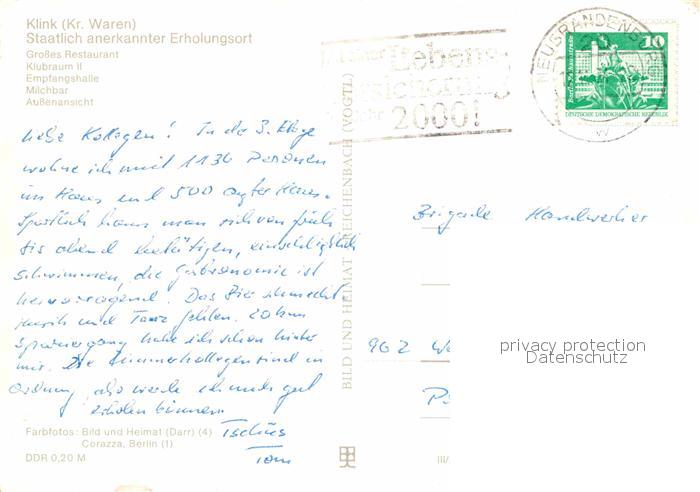 Klink (Kr. Waren)
Staatlich anerkannter Erholungsort
Großes Restaurant
Klubraum II
Empfangshalle
Milchbar
Außenansicht
Liebe Kollegen! In der 3. Etage
wohne ich mit 1136 Personen
im Haus und 500 außer Haus.
Sportlich kann man sich von früh
bis abend betätigen, einschließlich
schwimmen, die Gastronomie ist
hervorragend. Das Bier schmeckt
Musik und Tanz fehlen. 20 km
Spaziergang habe ich schon hinter
mir. Die Zimmerkollegen sind in
Ordnung, also werde ich mich gut
erholen können.
Tschüs
Tom
Farbfotos: Bild und Heimat (Darr) (4)
Corazza, Berlin (1)
DDR 0,20 M
BILD UND HEIMAT REICHENBACH (VOGTL)
III/
Lebens-
2000!
NEUBRANDENBURG
10
DEUTSCHE DEMOKRATISCHE REPUBLIK
Brigade Handwerker
962 We
privacy protection
Datenschutz